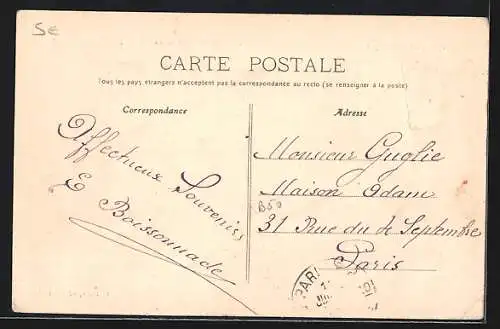 5€
CARTE POSTALE
Tous les pays étrangers n'acceptent pas la correspondance au recto (se renseigner à la poste)
Correspondance
Affectueux Souvenirs
E Boissonnade
Adresse
Monsieur Guglie
Maison Adam
B50
31 Rue du 4 Septembre
Paris
PARI